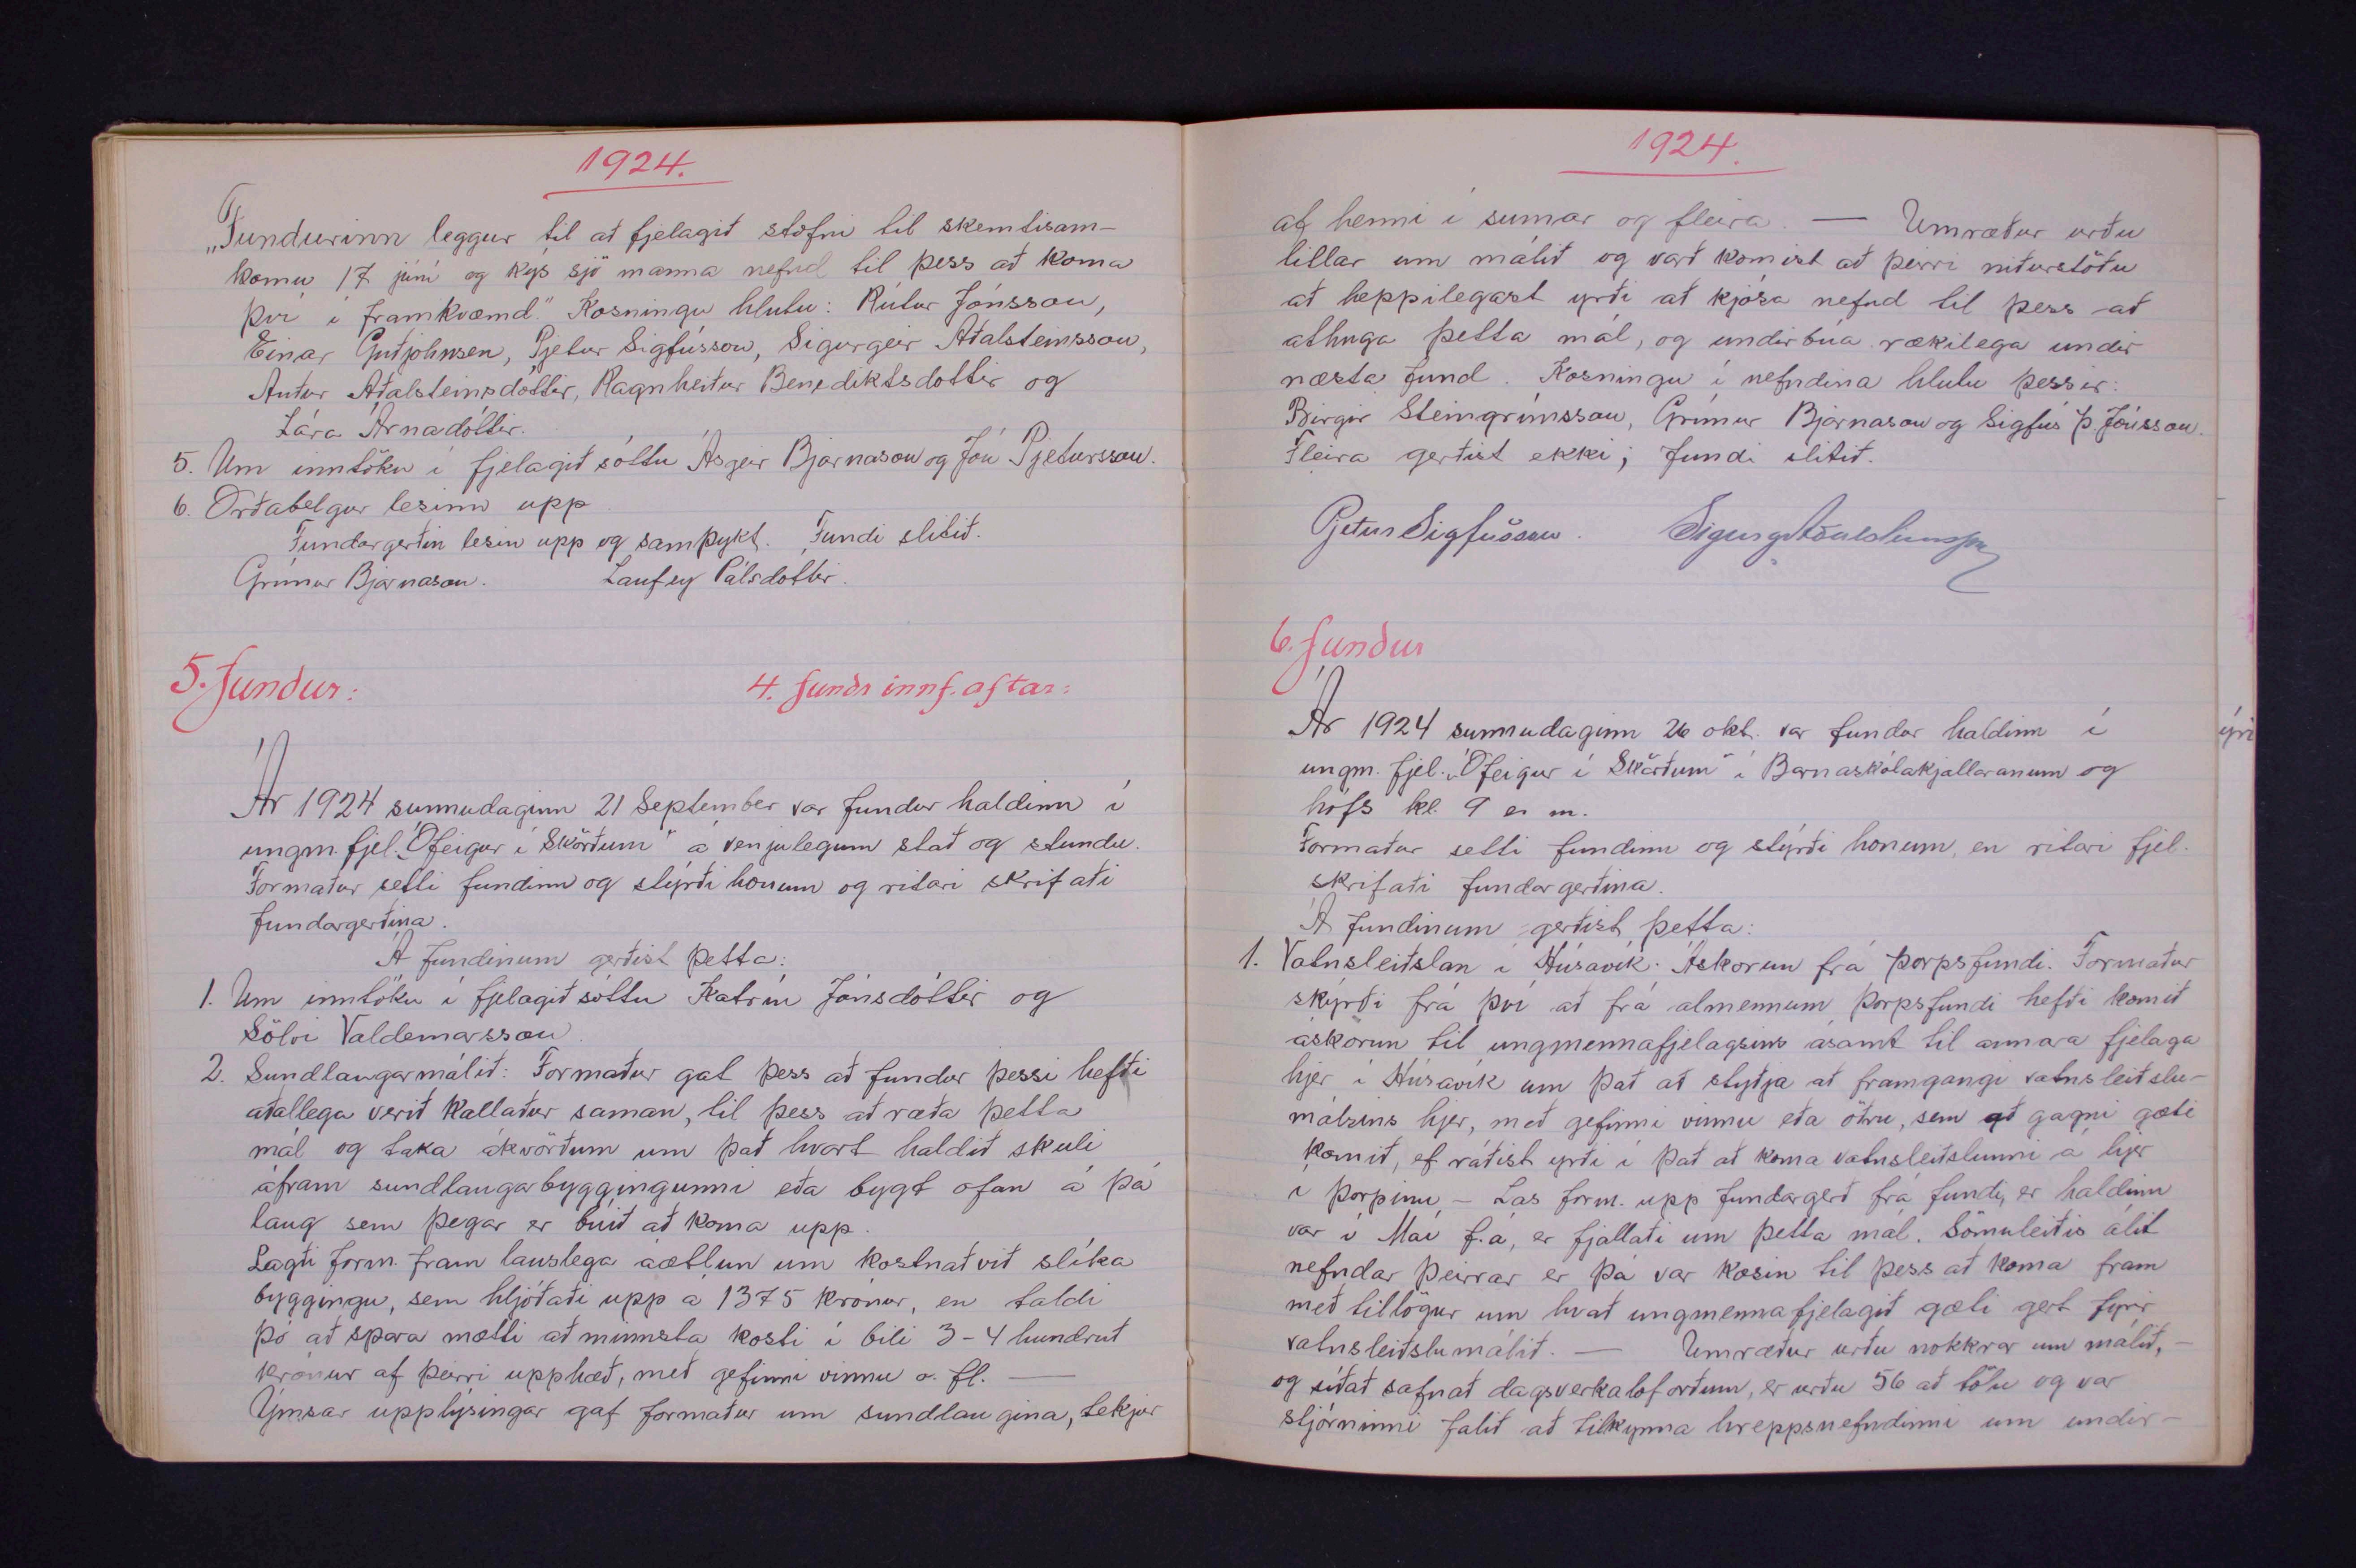 1924.
„Fundurinn leggur til að fjelagið stofni til skemtisam-
komu 17 júní og kjós sjö manna nefnd til þess að koma
því í framkvæmd." Kosningu hlutu: Rútur Jónsson,
Einar Guðjohnsen, Pjetur Sigfússon, Sigurgeir Aðalsteinsson,
Auður Aðalsteinsdóttir, Ragnheiður Benediktsdottir og
Lára Árnadóttir.
5. Um inntöku í fjelagið sóttu Ásgeir Bjarnason og Jón Pjetursson.
6. Orðabelgur lesinn upp
Fundargerðin lesin upp og samþykt. Fundi slitið.
Grímur Bjarnason. Laufey Pálsdottir.
5. fundur: 4. fundr innf. aftar:
Ár 1924 sunnudaginn 21 September var fundur haldinn í
ungm. fjel. „Ófeigur í Skörðum" á venjulegum stað og stundu.
Formaður setti fundinn og stýrði honum og ritari skrifaði
fundargerðina.
Á fundinum gerðist þetta:
1. Um inntöku í fjelagið sóttu Katrín Jónsdóttir og
Sölvi Valdemarsson.
2. Sundlaugarmálið: Formaður gat þess að fundur þessi hefði
aðallega verið kallaður saman, til þess að ræða þetta
mál og taka ákvörðum um það hvort haldið skuli
áfram sundlaugarbyggingunni eða bygt ofan á þá
laug sem þegar er búið að koma upp.
Lagði form. fram lauslega áætlun um kostnað við slíka
byggingu, sem hljóðaði upp á 1375 krónur, en taldi
þó að spara mætti að minnsta kosti í bili 3-4 hundruð
krónur af þeirri upphæð, með gefinni vinnu o. fl. —
Ýmsar upplýsingar gaf formaður um sundlaugina, tekjur
1924.
af henni í sumar og fleira. — Umræður urðu
litlar um málið og varð komist að þeirri niðurstöðu
að heppilegast yrði að kjósa nefnd til þess að
athuga þetta mál, og undirbúa rækilega undir
næsta fund. Kosningu í nefndina hlutu þessir:
Birgir Steingrímsson, Grímur Bjarnason og Sigfús Þ. Jónsson.
Fleira gerðist ekki; fundi slitið.
Pjetur Sigfússon. Sigurg Aðalsteinsson
6. fundur
Ár 1924 sunnudaginn 26 okt. var fundur haldinn í
ungm. fjel. „Ófeigur í Skörðum" í Barnaskólakjallaranum og
hófs kl. 9 e. m.
Formaður setti fundinn og stýrði honum, en ritari fjel.
skrifaði fundargerðina.
Á fundinum gerðist þetta:
1. Vatnsleiðslan í Húsavík. Áskorun frá þorpsfundi. Formaður
skýrði frá því að frá almennum þorpsfundi hefði komið
áskorun til ungmennafjelagsins ásamt til annara fjelaga
hjer í Húsavík um það að styðja að framgangi vatnsleiðslu-
málsins hjer, með gefinni vinnu eða öðru, sem að gagni gæti
komið, ef ráðist yrði í það að koma vatnsleiðslunni á hjer
í þorpinu, - Las form. upp fundargerð frá fundi, er haldinn
var í Maí f. á, er fjallaði um þetta mál. Sömuleiðis álit
nefndar þeirrar er þá var kosin til þess að koma fram
með tillögur um hvað ungmennafjelagið gæti gert fyrir
vatnsleiðslumálið. — Umræður urðu nokkrar um málið, -
og síðað safnað dagsverkaloforðum, er urðu 56 að tölu og var
stjórninni falið að tilkynna hreppsnefndinni um undir-